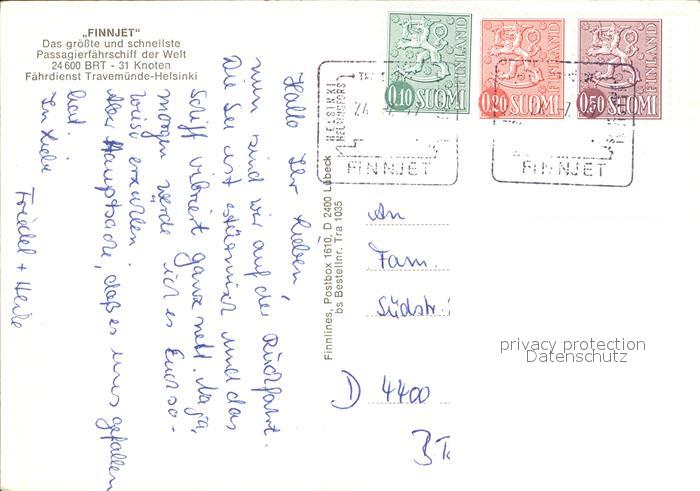 „FINNJET"
Das größte und schnellste
Passagierfährschiff der Welt
24 600 BRT - 31 Knoten
Fährdienst Travemünde-Helsinki
Hallo Ihr Lieben,
nun sind wir auf der Rückfahrt.
Die See ist stürmisch und das
Schiff vibriert ganz nett. Naja,
morgen werde ich es Euer so-
weiso erzählen.
Aber Hauptsache, daß es uns gefallen
hat.
In Liebe
Friedel + Heile
Finnlines, Postbox 1610, D 2400 Lübeck
bs Bestellnr. Tra 1035
0,10 SUOMI FINLAND
0,20 SUOMI FINLAND
0,50 SUOMI FINLAND
HELSINKI
HELSINGFORS
FINNJET
FINNJET
An
Fam.
Südstr.
D 4400
privacy protection
Datenschutz